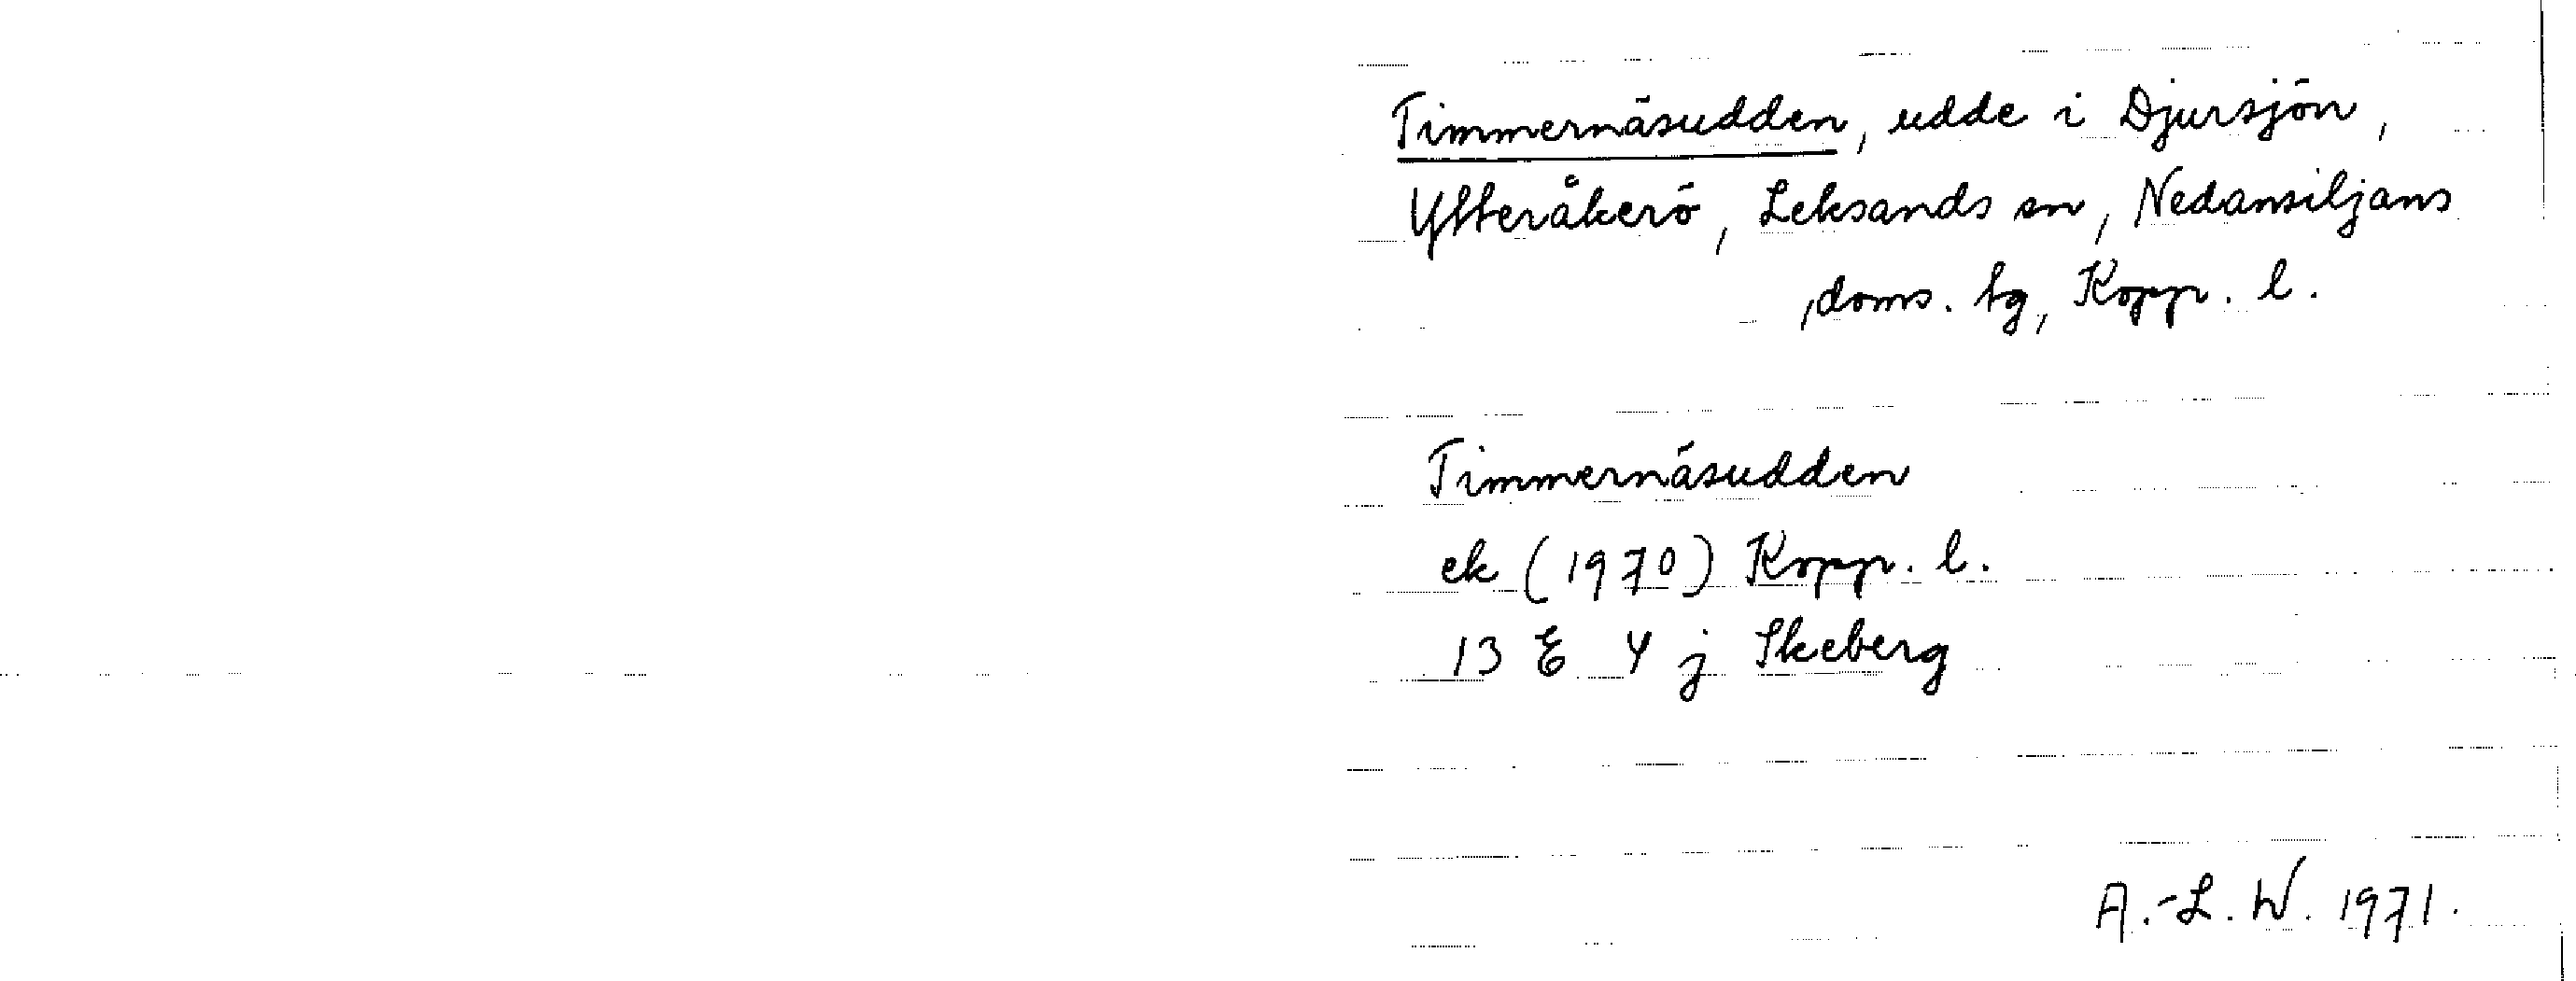 Timmernäsudden, udde i Djursjön,
Ytteråkerö, Leksands sn, Nedansiljans
doms. tg, Kopp. l.
Timmernäsudden
ek (1970) Kopp. l.
13 E 4 j Skeberg
A.-L. W. 1971.